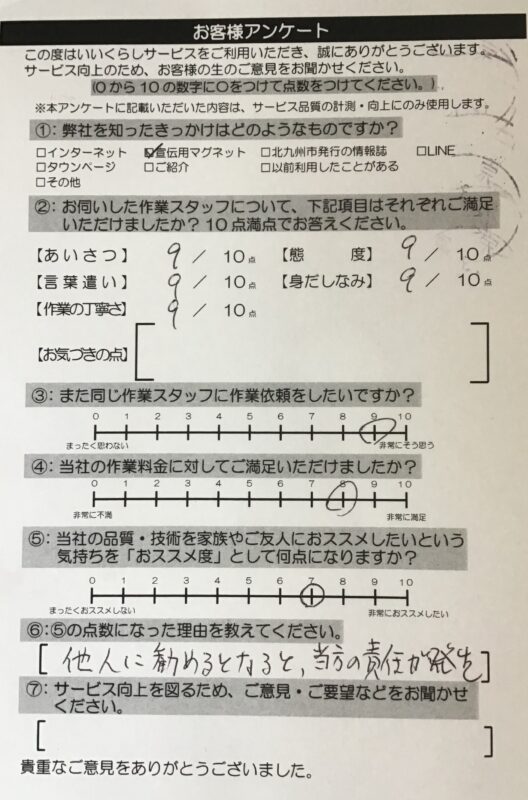 お客様アンケート
この度はいいくらしサービスをご利用いただき、誠にありがとうございます。
サービス向上のため、お客様の生のご意見をお聞かせください。
(0から10の数字に○をつけて点数をつけてください。)
※本アンケートに記載いただいた内容は、サービス品質の計測・向上にのみ使用します。
①:弊社を知ったきっかけはどのようなものですか?
□インターネット ☑宣伝用マグネット □北九州市発行の情報誌 □LINE
□タウンページ □ご紹介 □以前利用したことがある
□その他
②:お伺いした作業スタッフについて、下記項目はそれぞれご満足
いただけましたか?10点満点でお答えください。
【あいさつ】 9 / 10点 【態度】 9 / 10点
【言葉遣い】 9 / 10点 【身だしなみ】 9 / 10点
【作業の丁寧さ】 9 / 10点
【お気づきの点】
③:また同じ作業スタッフに作業依頼をしたいですか?
0 1 2 3 4 5 6 7 8 9 10
まったく思わない 非常にそう思う
④:当社の作業料金に対してご満足いただけましたか?
0 1 2 3 4 5 6 7 8 9 10
非常に不満 非常に満足
⑤:当社の品質・技術を家族やご友人におススメしたいという
気持ちを「おススメ度」として何点になりますか?
0 1 2 3 4 5 6 7 8 9 10
まったくおススメしない 非常におススメしたい
⑥:⑤の点数になった理由を教えてください。
[他人に勧めるとなると、当方の責任が発生]
⑦:サービス向上を図るため、ご意見・ご要望などをお聞かせ
ください。
貴重なご意見をありがとうございました。